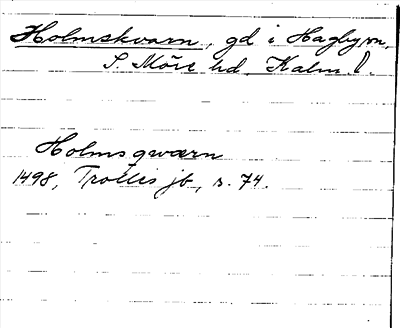 Holmskvarn, gd i Hagby sn,
S. Möre hd, Kalm. l.
Holmsqwærn
1498, Trolles jb, s. 74.